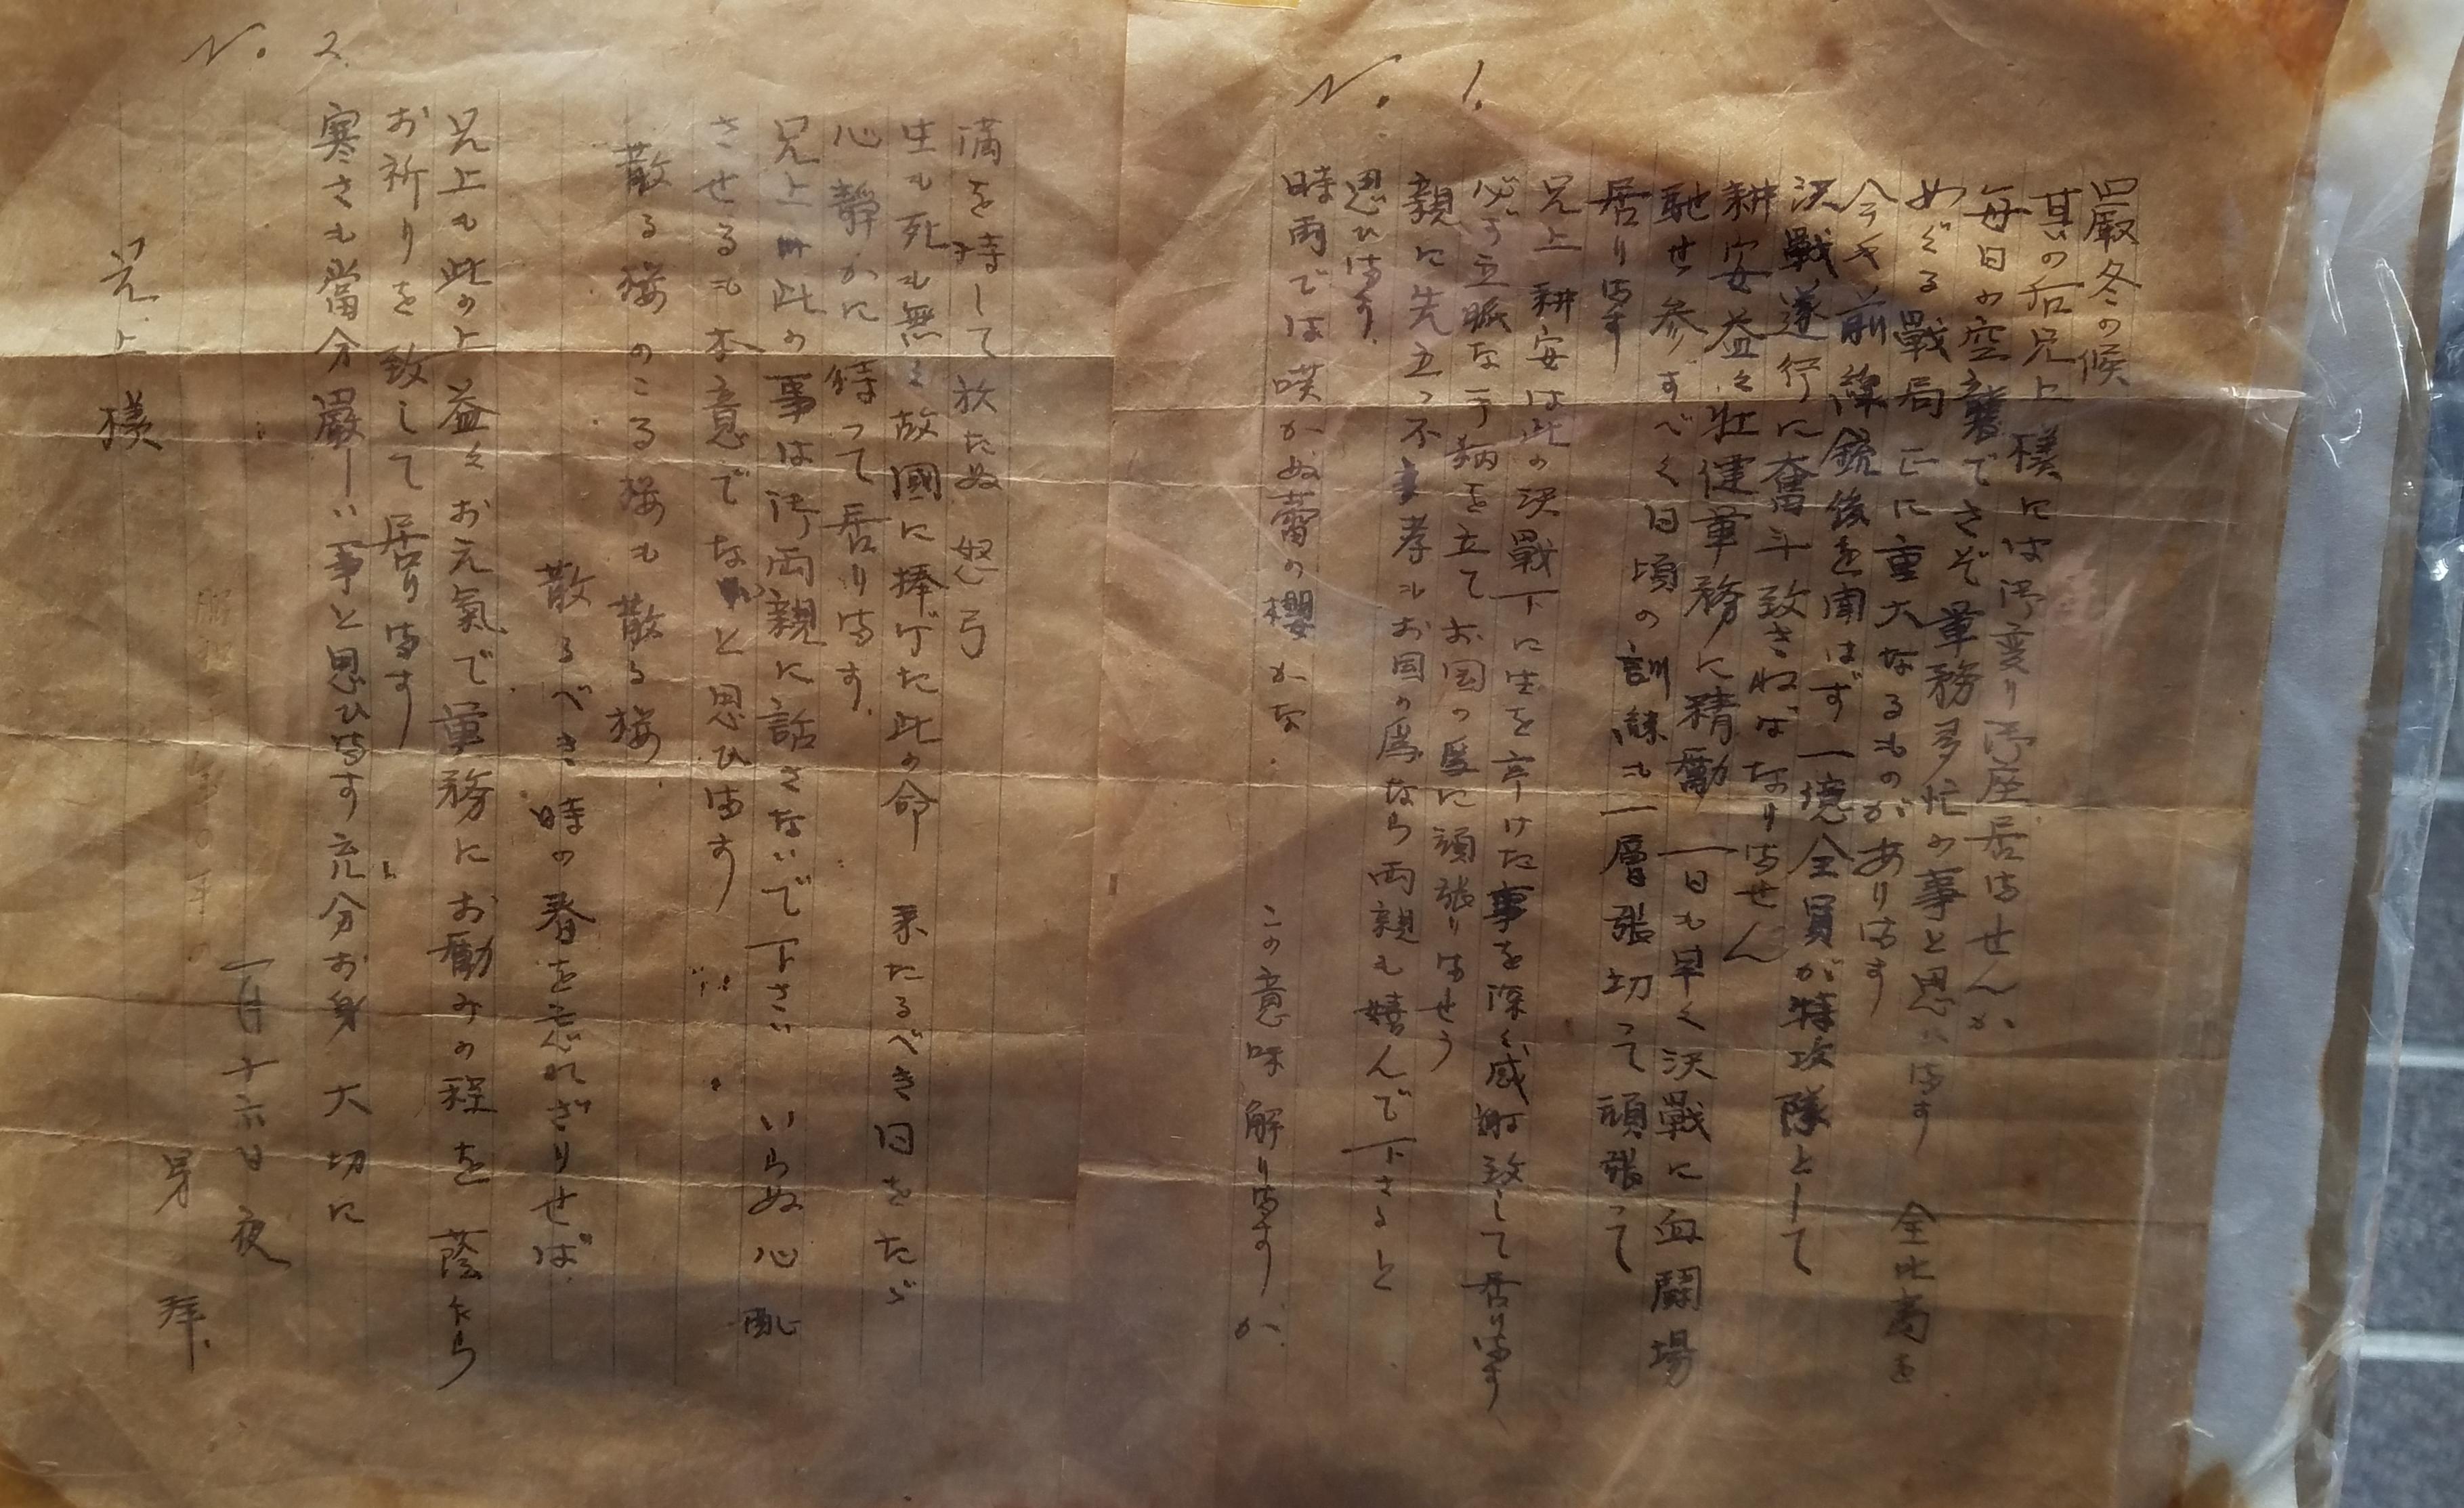 No. 1.
嚴冬の候
其の后兄上様には御変り御座居ませんか
毎日の空襲でさぞ軍務多忙の事と思ひます 全比島を
めぐる戰局正に重大なるものがあります
今や前線銃後を問はず一億全員が特攻隊として
決戰遂行に奮斗致さねばなりません
耕安益々壮健軍務に精勵一日も早く決戰に血闘場
馳せ参ずべく日頃の訓練も一層張切って頑張って
居ります
兄上 耕安は此の決戰下に生を享けた事を深く感謝致して居ります
必ず立派な手柄を立てお国の為に頑張りませう
親に先立つ不孝もお国の為なら両親も嬉んで下さると
思ひます.
時雨では咲かぬ蕾の櫻かな
この意味解りますか.
No. 2.
満を持して放たぬ 怒弓
生も死も無く故國に捧げた此の命 来たるべき日をたゞ
心靜かに待って居ります.
兄上 此の事は御両親に話さないで下さい いらぬ心配
させるも本意でないと思ひます
散る櫻のこる櫻も散る櫻.
散るべき時の春を忘れざりせば.
兄上も此の上益々お元氣で軍務にお勵みの程を蔭ながら
お祈りを致して居ります
寒さも當分嚴しい事と思ひます充分お身大切に
一月十六日夜
弟 拜.
兄上様